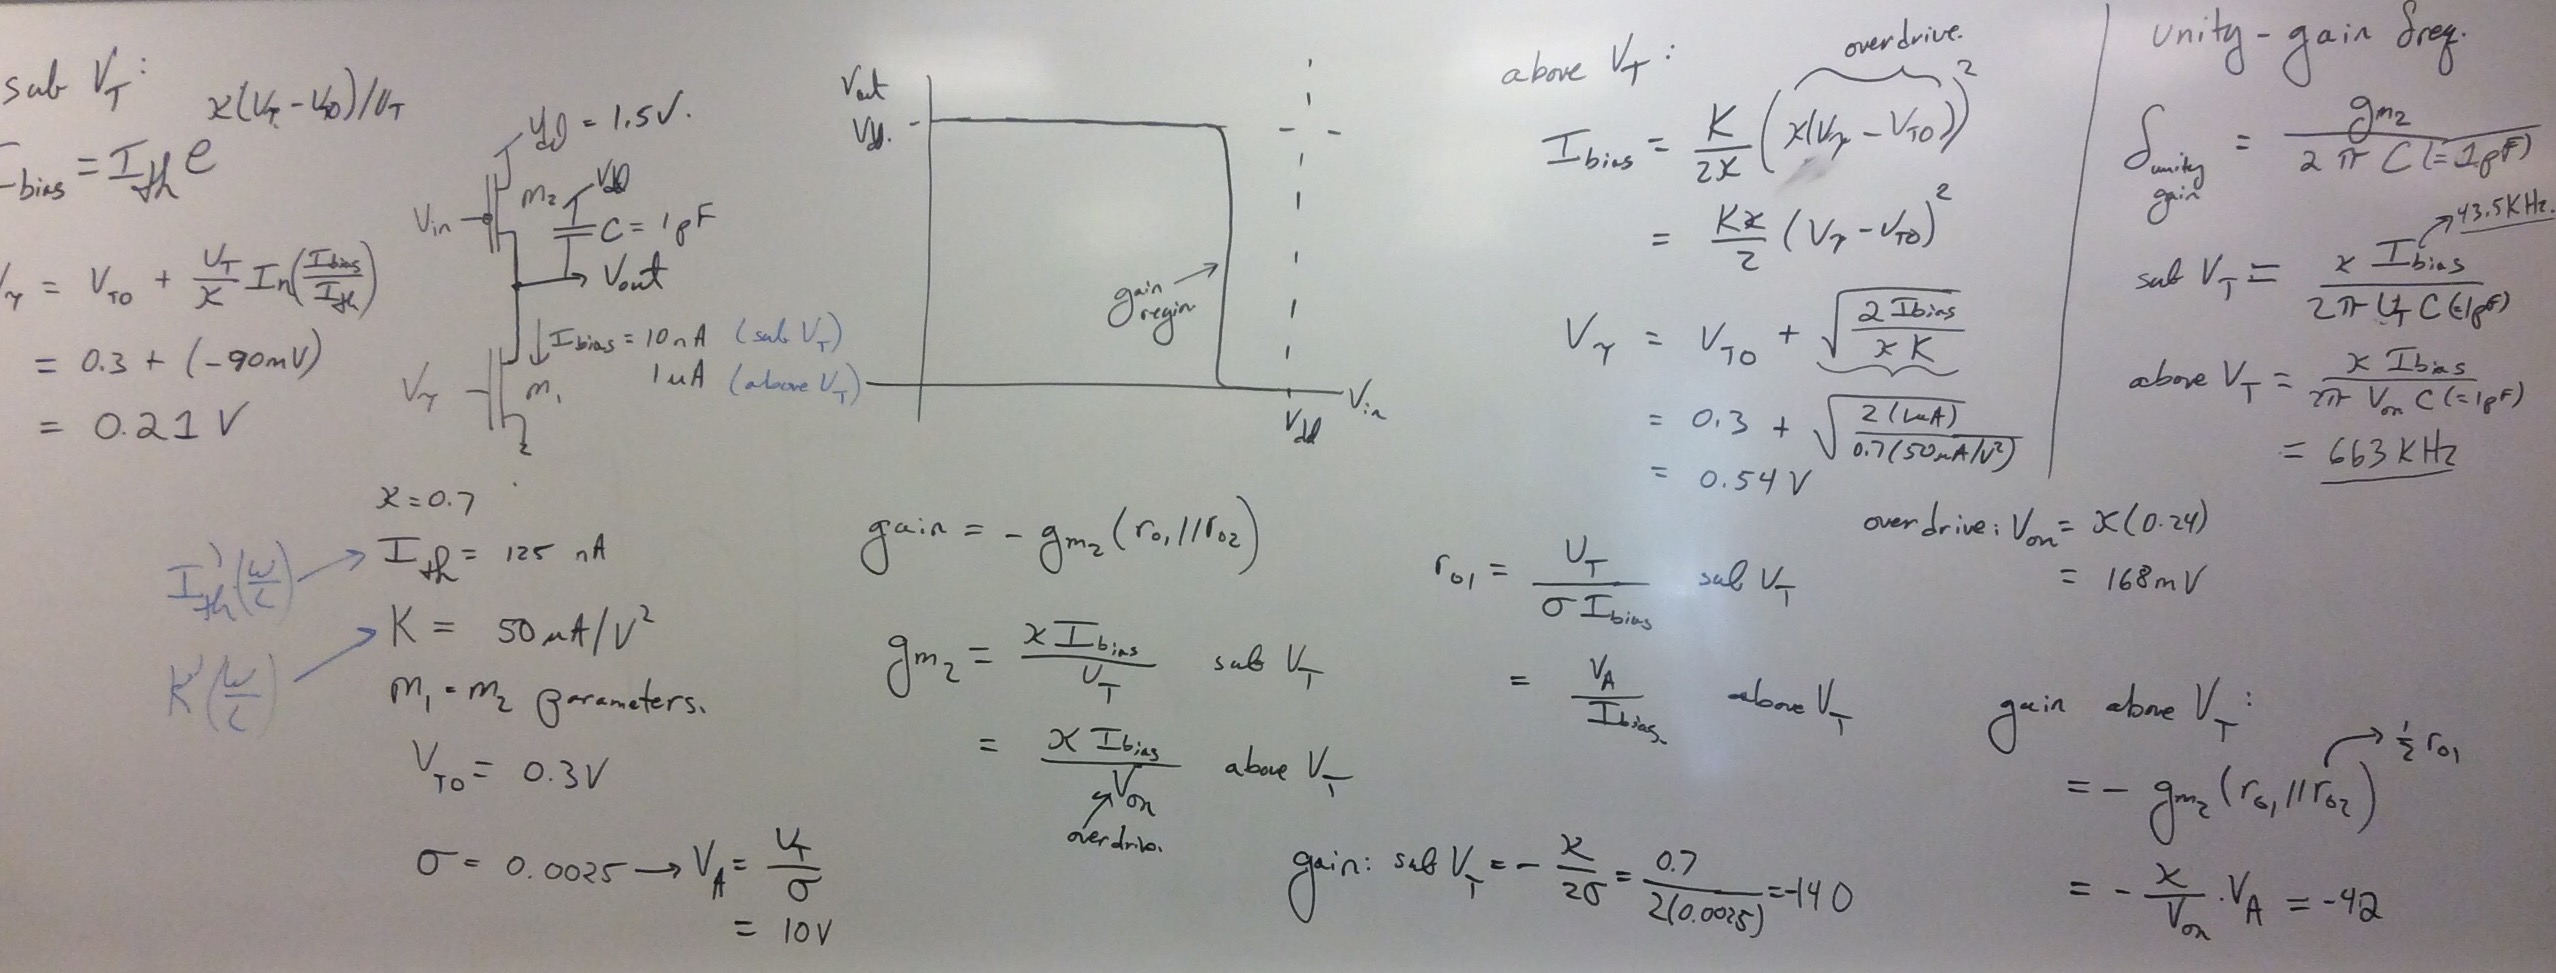 sub V_T:
I_bias = I_th e^(κ(V_γ - V_T0)/U_T)
V_γ = V_T0 + U_T/κ ln(I_bias/I_th)
= 0.3 + (-90mV)
= 0.21 V
Vdd = 1.5V.
Vin
M2
Vdd
C = 1pF
Vout
I_bias = 10nA (sub V_T)
1uA (above V_T)
V_γ
M1
κ = 0.7
I_th'(W/L) → I_th = 125 nA
K'(W/L) → K = 50 uA/V²
M1 = M2 parameters.
V_T0 = 0.3V
σ = 0.0025 → V_A = U_T/σ
= 10V
Vout
Vdd.
gain
region
Vdd
Vin
gain = - g_m2 (r_01 // r_02)
g_m2 = κ I_bias / U_T sub V_T
= κ I_bias / V_on above V_T
overdrive.
above V_T:
overdrive.
I_bias = K/2κ (κ(V_γ - V_T0))²
= Kκ/2 (V_γ - V_T0)²
V_γ = V_T0 + √(2 I_bias / κ K)
= 0.3 + √(2(1uA) / 0.7(50uA/V²))
= 0.54 V
overdrive: V_on = κ(0.24)
= 168mV
r_01 = U_T / σ I_bias sub V_T
= V_A / I_bias. above V_T
gain: sub V_T = - κ/2σ = 0.7/2(0.0025) = -140
unity-gain freq.
f_unity gain = g_m2 / 2π C(=1pF)
43.5KHz.
sub V_T = κ I_bias / 2π U_T C(=1pF)
above V_T = κ I_bias / 2π V_on C(=1pF)
= 663 KHz
gain above V_T:
½ r_01
= - g_m2 (r_01 // r_02)
= - κ/V_on · V_A = -42